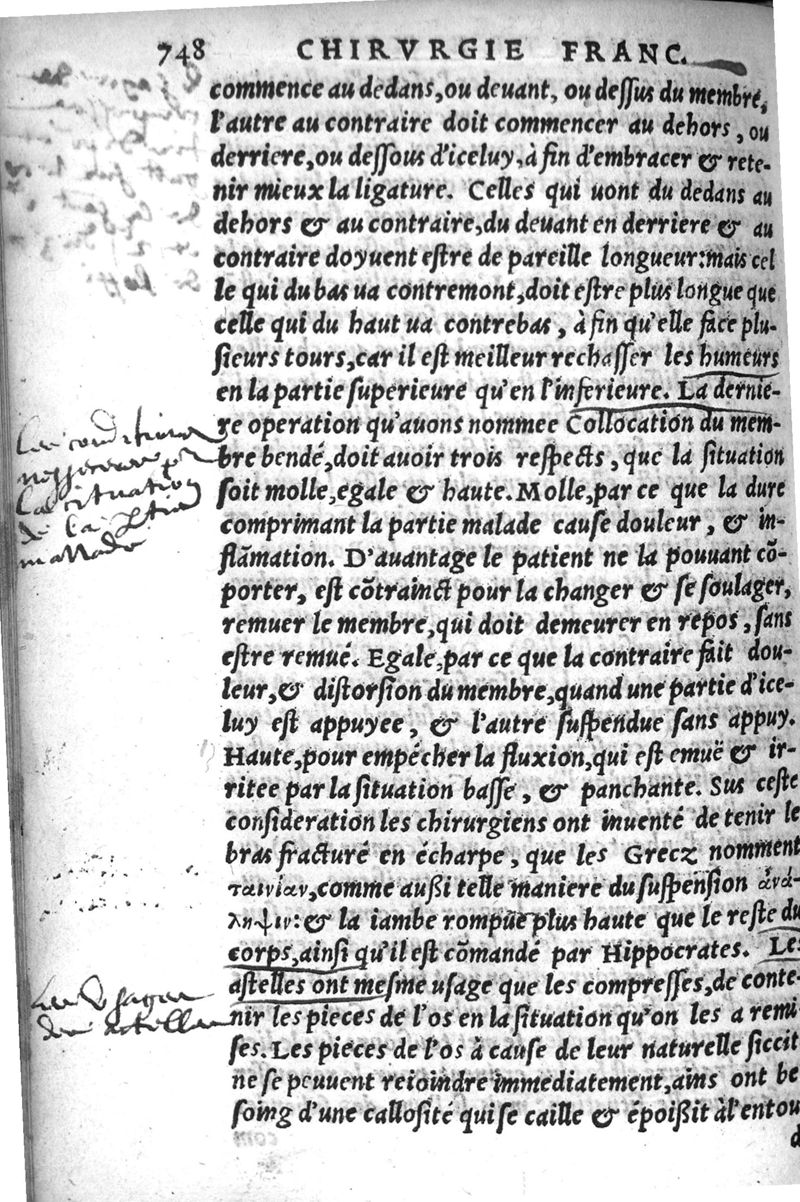 748 CHIRVRGIE FRANC.
commence au dedans, ou deuant, ou dessus du membre,
l'autre au contraire doit commencer au dehors, ou
derriere, ou dessous d'iceluy, à fin d'embracer & rete-
nir mieux la ligature. Celles qui uont du dedans au
dehors & au contraire, du deuant en derriere & au
contraire doyuent estre de pareille longueur: mais cel
le qui du bas ua contremont, doit estre plus longue que
celle qui du haut ua contrebas, à fin qu'elle face plu-
sieurs tours, car il est meilleur rechasser les humeurs
en la partie superieure qu'en l'inferieure. La dernie-
re operation qu'auons nommee Collocation du mem-
bre bendé, doit auoir trois respects, que la situation
soit molle, egale & haute. Molle, par ce que la dure
comprimant la partie malade cause douleur, & in-
flãmation. D'auantage le patient ne la pouuant cõ-
porter, est cõtrainct pour la changer & se soulager,
remuer le membre, qui doit demeurer en repos, sans
estre remué. Egale, par ce que la contraire fait dou-
leur, & distorsion du membre, quand une partie d'ice-
luy est appuyee, & l'autre suspendue sans appuy.
Haute, pour empécher la fluxion, qui est emuë & ir-
ritee par la situation basse, & panchante. Sus ceste
consideration les chirurgiens ont inuenté de tenir le
bras fracturé en écharpe, que les Grecz nomment
ταινίαν, comme außi telle maniere du suspension ἀνά-
ληψιν: & la iambe rompue plus haute que le reste du
corps, ainsi qu'il est cõmandé par Hippocrates. Les
astelles ont mesme usage que les compresses, de conte-
nir les pieces de l'os en la situation qu'on les a remi
ses. Les pieces de l'os à cause de leur naturelle siccit
ne se peuuent reioindre immediatement, ains ont be
soing d'une callosité qui se caille & époißit à l'entou
d
Les conditions
necessaires pr
la situation
de la ptie
mallade
Les Usages
des Astelles